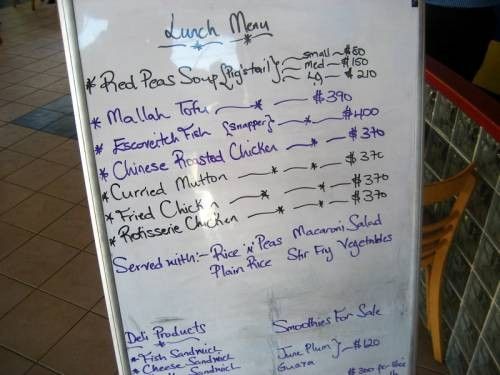 Lunch Menu
* Red Peas Soup {Pig'stail} small ~ $80
med ~ $150
Lg ~ $210
* Mallah Tofu * $390
* Escoveitch Fish {Snapper} * $400
* Chinese Roasted Chicken * $370
* Curried Mutton * * $370
* Fried Chicken * * $370
* Rotisserie Chicken * * $370
Served with:- Rice 'n' Peas Macaroni Salad
Plain Rice Stir Fry Vegetables
Deli Products Smoothies For Sale
* Fish Sandwich June Plum } $120
* Cheese Sandwich Guava
$300 per